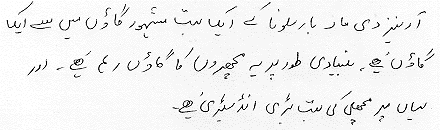 آرینیز دی مار بارسلونا کے ایک بہت مشہور گاؤں میں سے ایک
گاؤں ہے۔ بنیادی طور پر یہ مچھیروں کا گاؤں رہا ہے۔ اور
یہاں پر مچھلی کی بہت بڑی انڈسٹری ہے۔